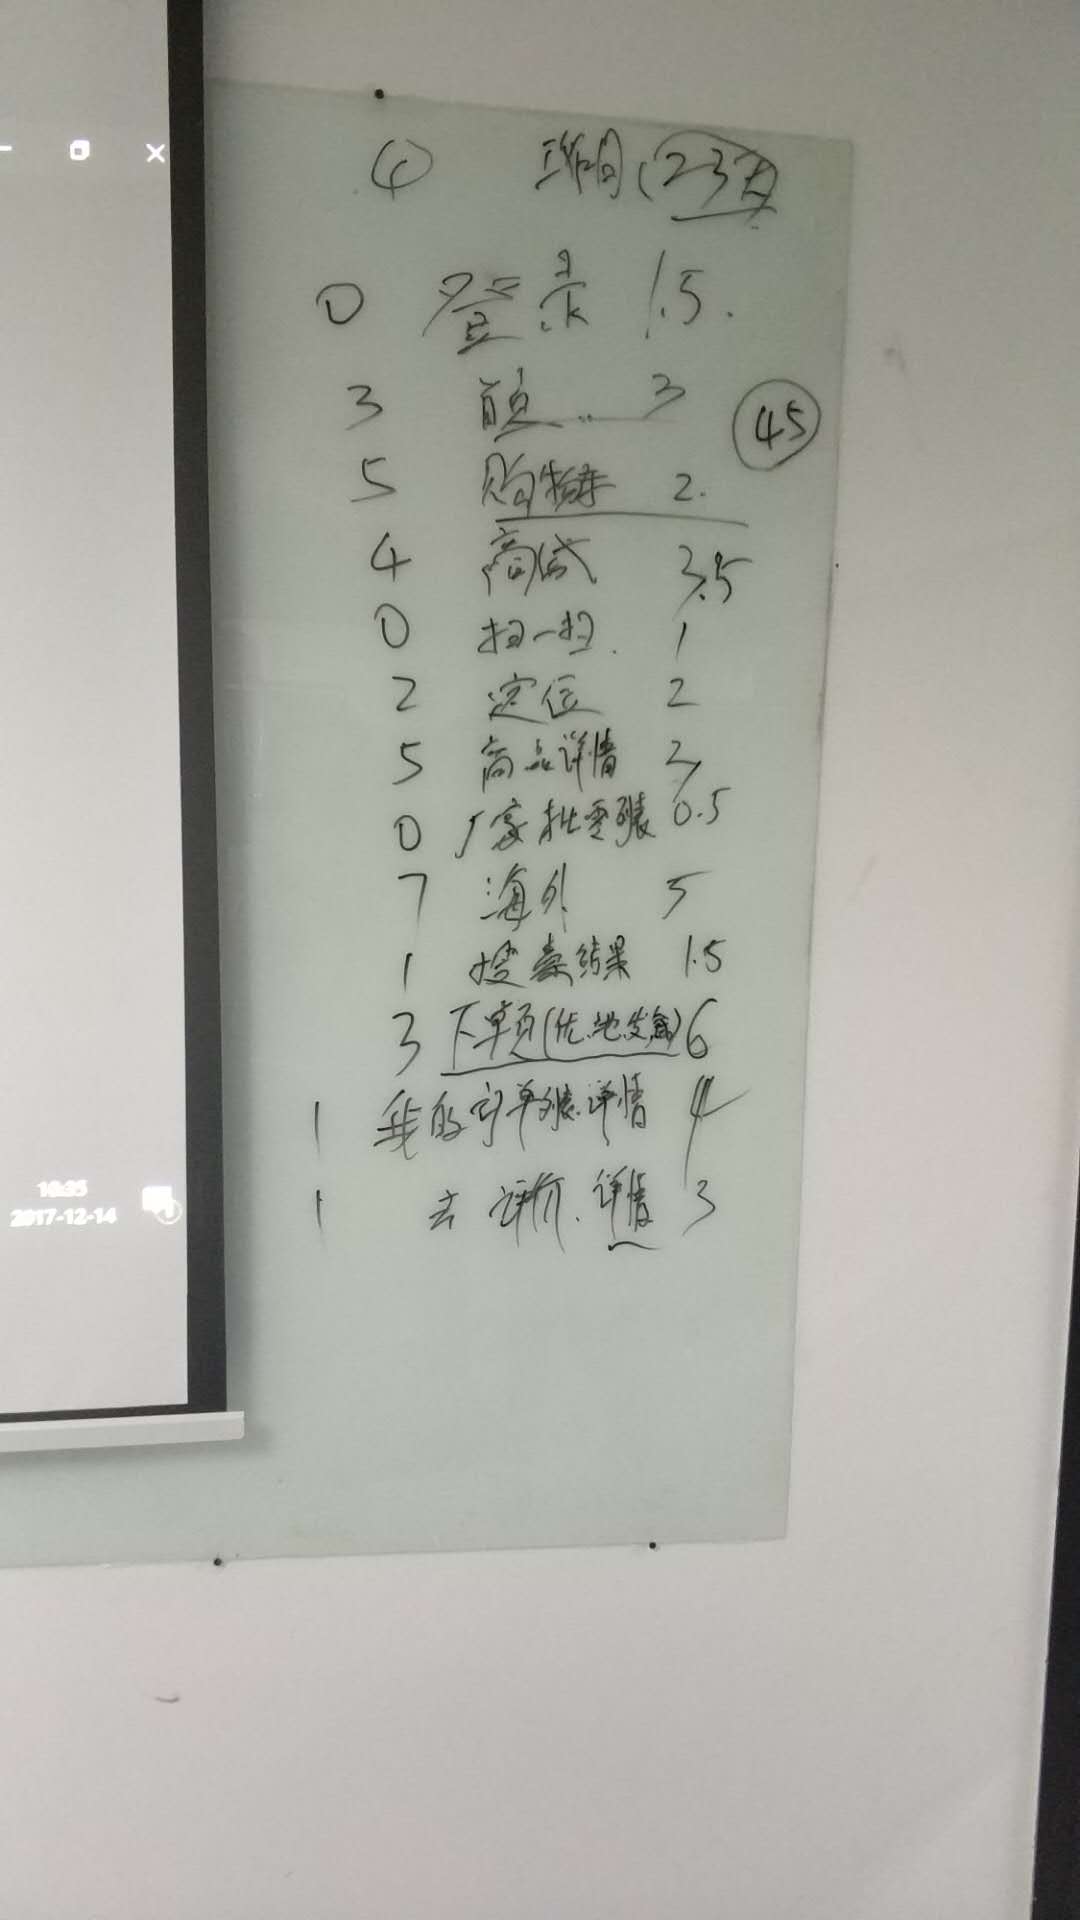 ④ 工作日(23天)
0 登录 1.5.
3 首页 .. 3
45
5 购物车 2.
4 商城 3.5
0 扫一扫. 1
2 定位 2
5 商品详情 2
0 厂家批零列表 0.5
7 海外 5
1 搜索结果 1.5
3 下单页(优.地.发.) 6
1 我的订单列表.详情 4
1 去评价.详情 3
10:35
2017-12-14